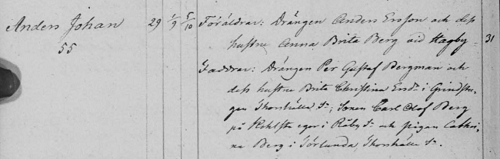 Anders Johan 29 1/9 5/10 Föräldrar: Drängen Anders Ersson och dess
55 hustru Anna Brita Berg vid Hagby 31
Faddrar: Drängen Per Gustaf Bergman och
dess hustru Brita Christina Ersd. i Grindstu-
gan Thorshälla S:n; Sonen Carl Olof Berg
på Kohlsta egor i Råby S:n och pigan Cathri-
na Berg i Sörlunda Thorshälla S:n.